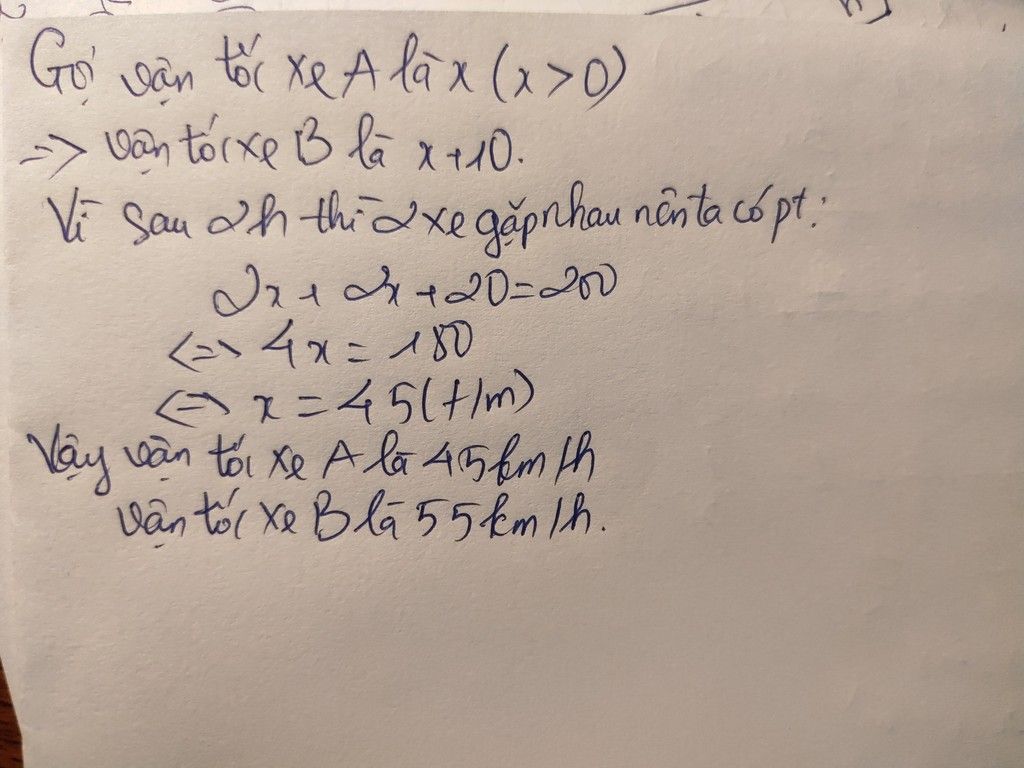 Gọi vận tốc xe A là x (x > 0)
=> vận tốc xe B là x+10.
Vì sau 2h thì 2 xe gặp nhau nên ta có pt:
2x + 2x + 20 = 200
<=> 4x = 180
<=> x = 45 (t/m)
Vậy vận tốc xe A là 45 km/h
vận tốc xe B là 55 km/h.